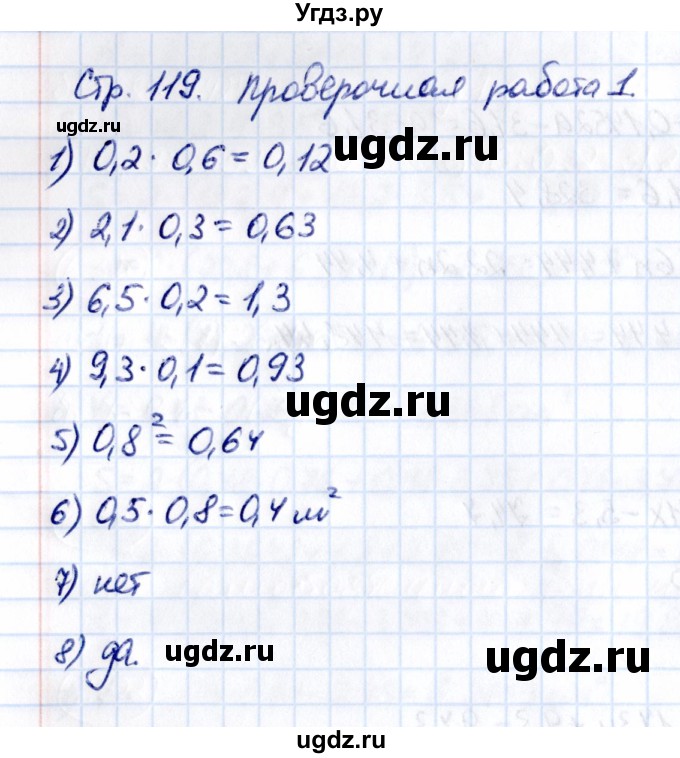 Угдз.ру
Стр. 119. Проверочная работа 1.
ugdz.ru
ugdz.ru
1) 0,2 · 0,6 = 0,12
2) 2,1 · 0,3 = 0,63
3) 6,5 · 0,2 = 1,3
4) 9,3 · 0,1 = 0,93
ugdz.ru
5) 0,8² = 0,64
6) 0,5 · 0,8 = 0,4 м²
7) нет
8) да.
ugdz.ru
ugdz.ru
ugdz.ru